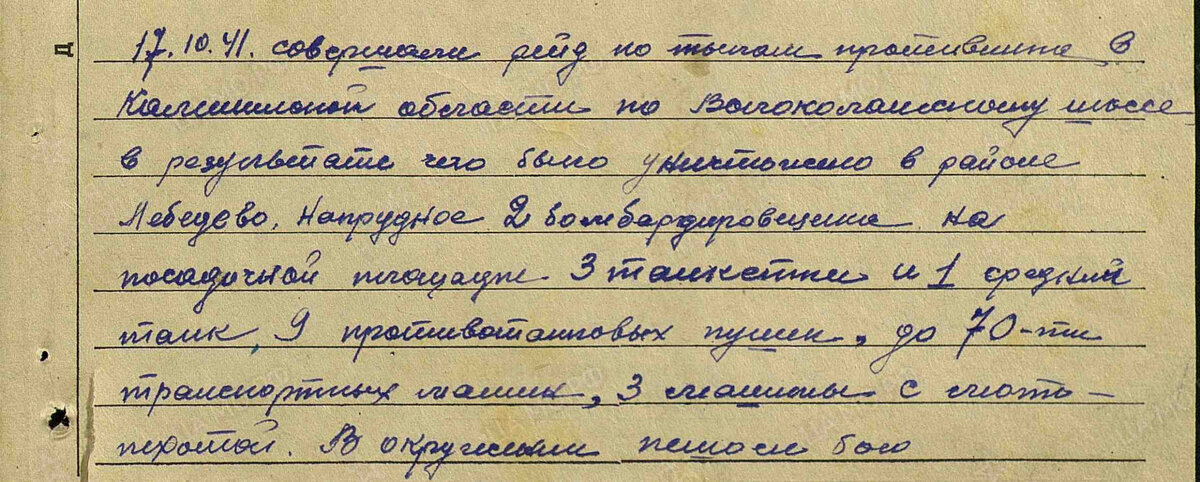 Д
17.10.41. совершали рейд по тылам противника в
Калининской области по Волоколамскому шоссе
в результате чего было уничтожено в районе
Лебедево, Напрудное 2 бомбардировщика на
посадочной площадке 3 танкетки и 1 средний
танк, 9 противотанковых пушек, до 70-ти
транспортных машин, 3 машины с мото-
пехотой. В окружении пешом бою